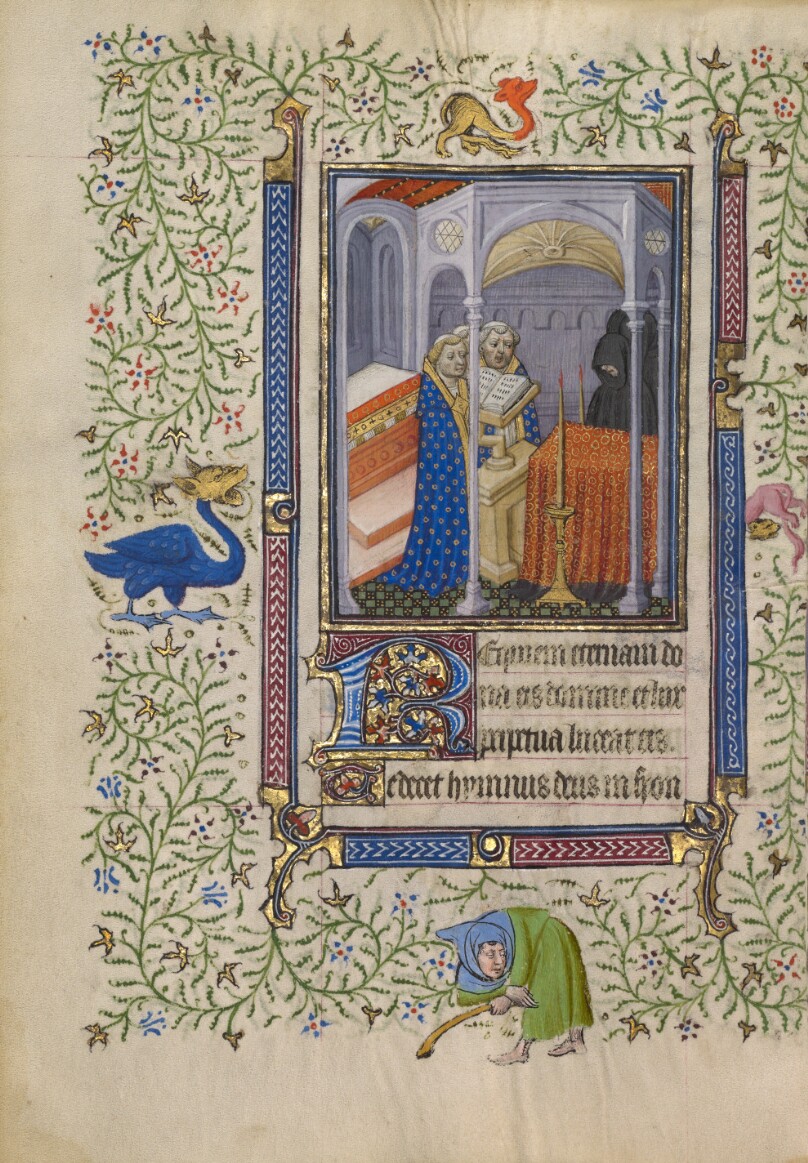 Requiem eternam do
na eis domine et lux
perpetua luceat eis.
Te decet hymnus deus in syon